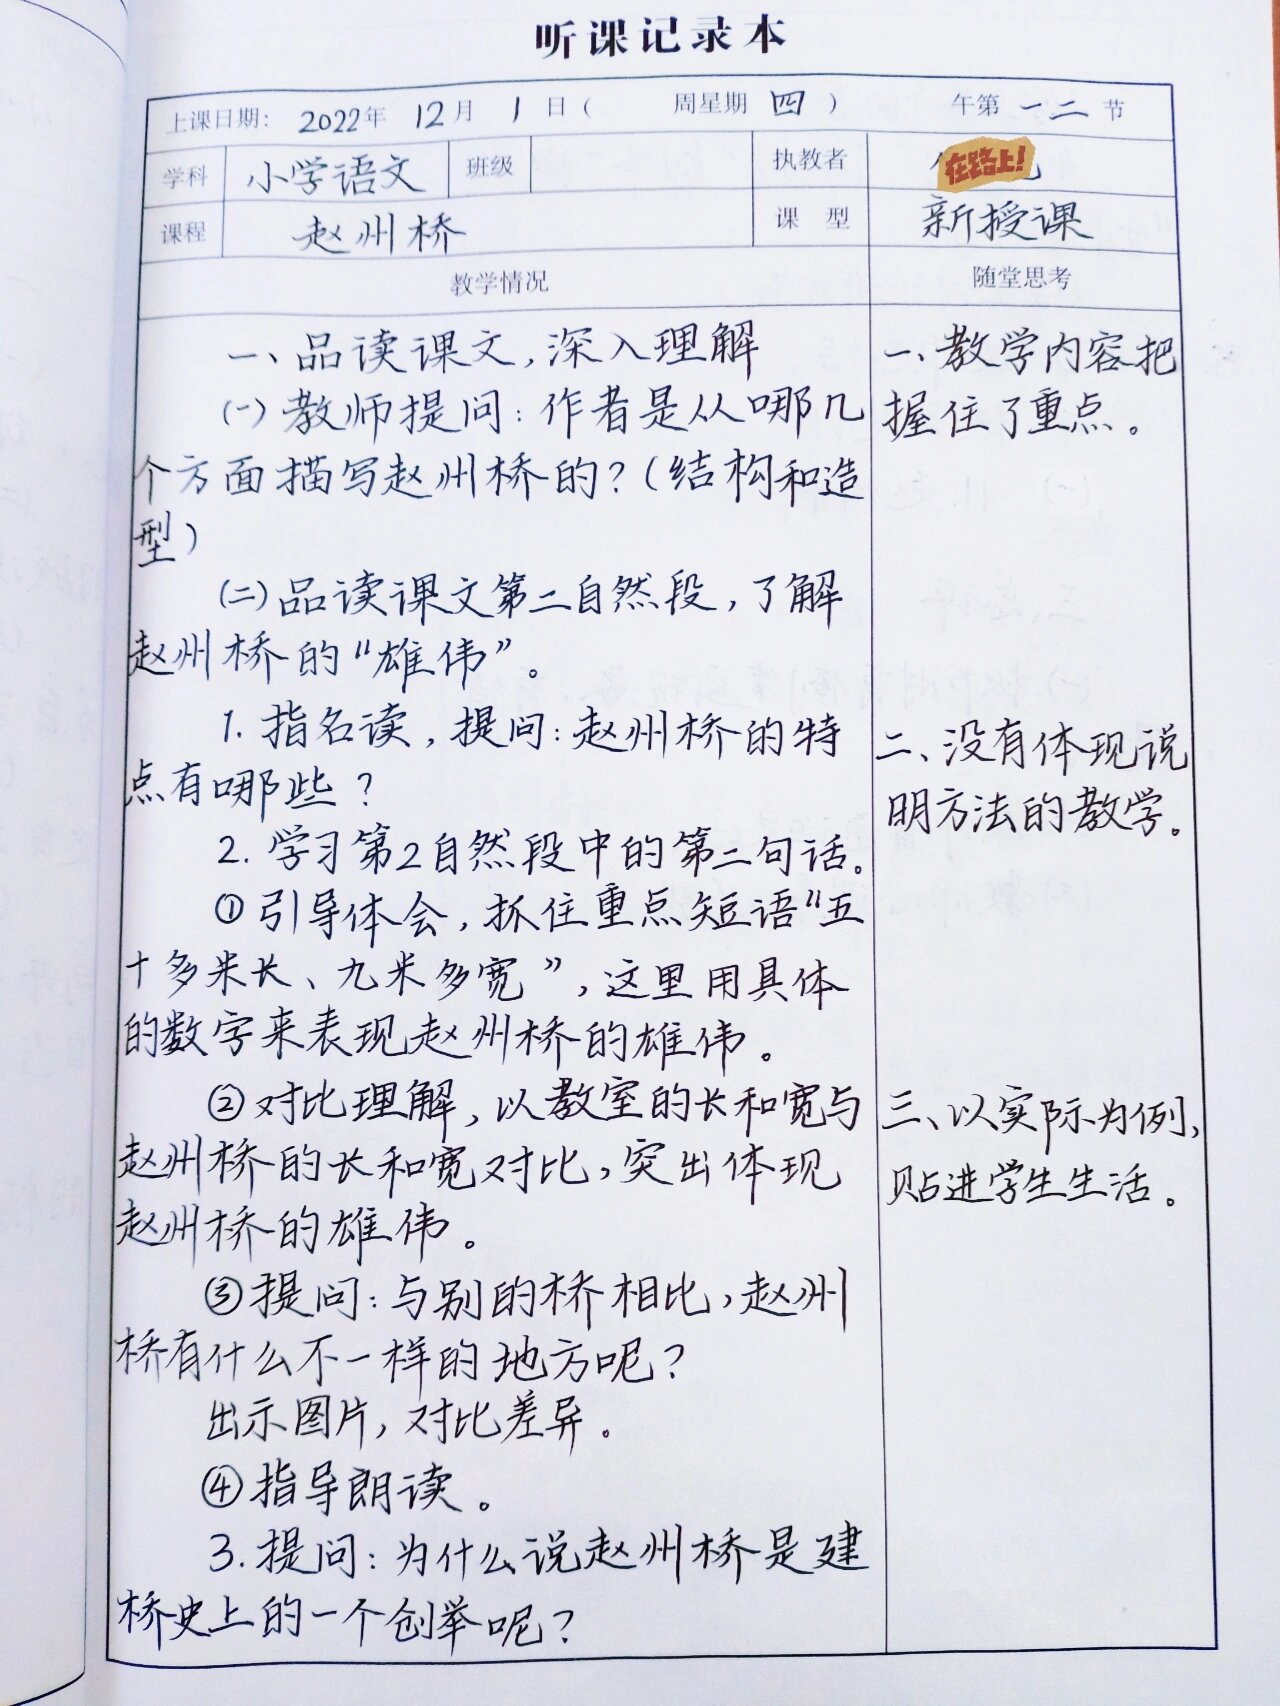 听课记录本
上课日期: 2022年 12月 1日( 周星期 四 ) 午第 一 二 节
学科 小学语文 班级 执教者 在路上!
课程 赵州桥 课 型 新授课
教学情况 随堂思考
一、品读课文,深入理解
㈠教师提问:作者是从哪几
个方面描写赵州桥的?(结构和造
型)
㈡品读课文第二自然段,了解
赵州桥的“雄伟”。
1.指名读,提问:赵州桥的特
点有哪些?
2.学习第2自然段中的第二句话。
①引导体会,抓住重点短语“五
十多米长、九米多宽”,这里用具体
的数字来表现赵州桥的雄伟。
②对比理解,以教室的长和宽与
赵州桥的长和宽对比,突出体现
赵州桥的雄伟。
③提问:与别的桥相比,赵州
桥有什么不一样的地方呢?
出示图片,对比差异。
④指导朗读。
3.提问:为什么说赵州桥是建
桥史上的一个创举呢?
一、教学内容把
握住了重点。
二、没有体现说
明方法的教学。
三、以实际为例,
贴进学生生活。